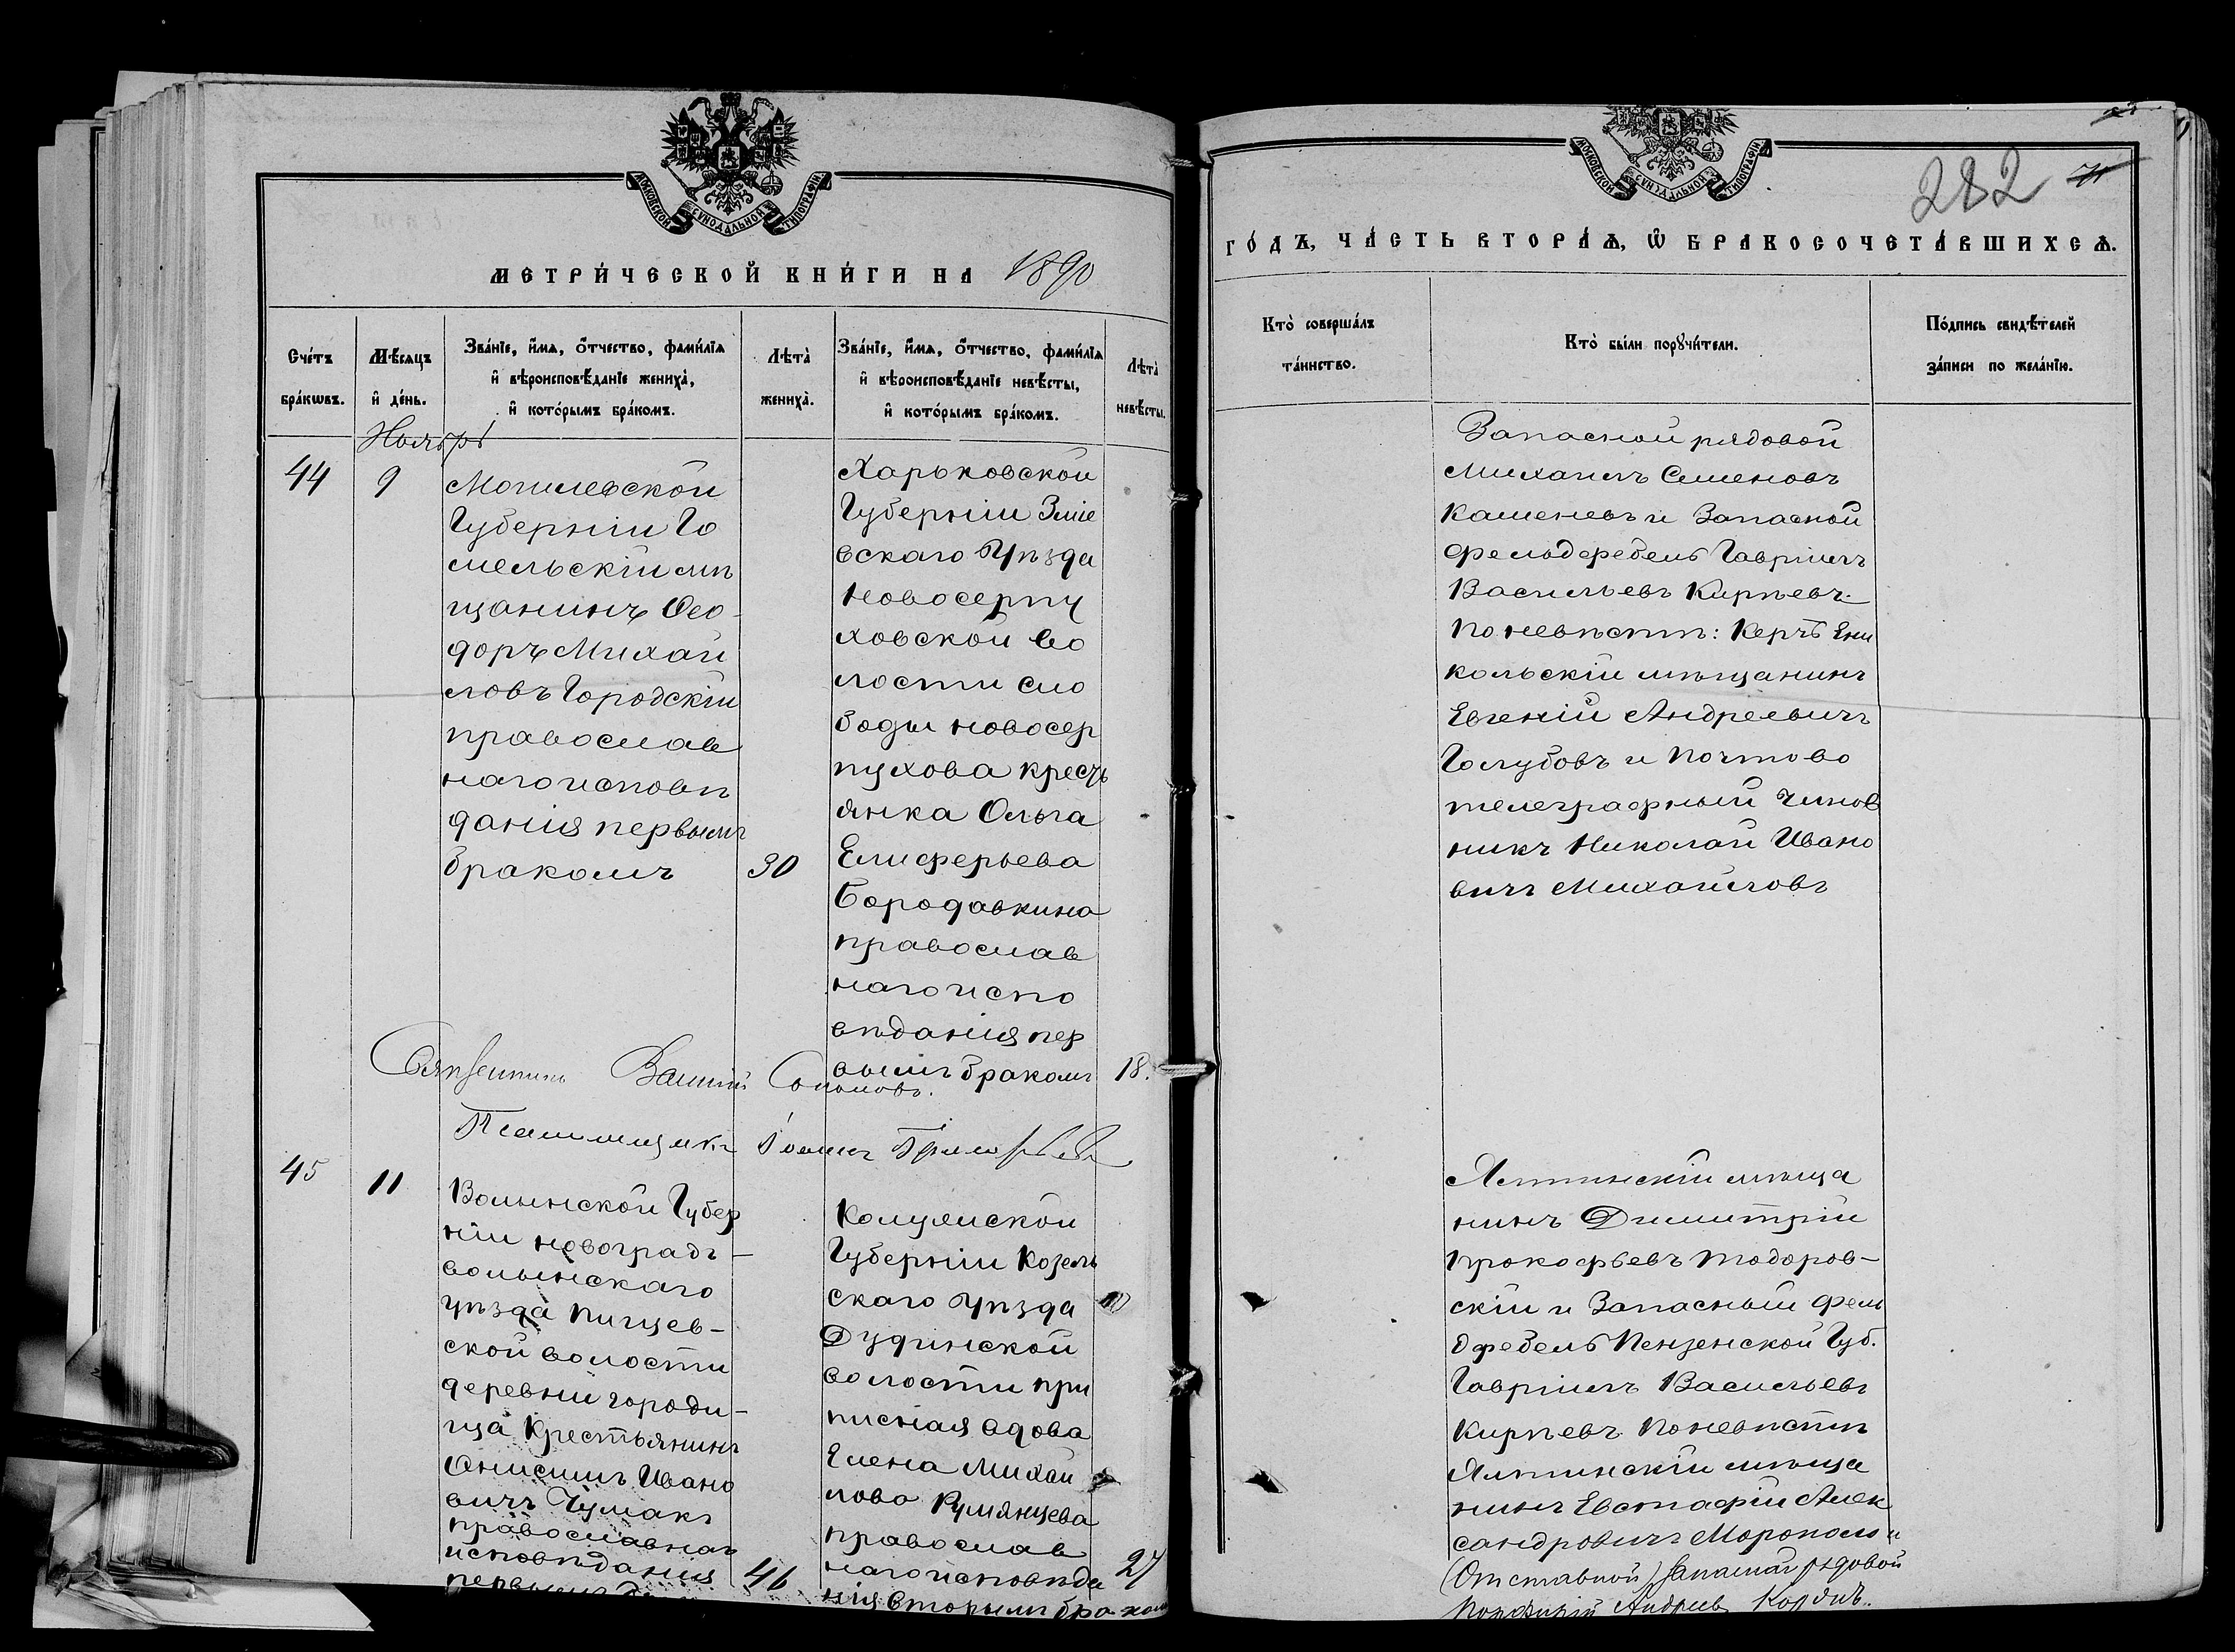 МОСКОВСКОЙ СѴНОДАЛЬНОЙ ТИПОГРАФІИ
МЕТРИ́ЧЕСКОЙ КНИ́ГИ НА 1890
Сче́тъ бра́кѡвъ.
Мѣ́сяцъ и де́нь.
Зва́нїе, и́мя, о́тчество, фами́лїя и вѣроисповѣ́данїе жениха̀, и кото́рымъ бра́комъ.
Лѣта̀ жениха̀.
Зва́нїе, и́мя, о́тчество, фами́лїя и вѣроисповѣ́данїе невѣ́сты, и кото́рымъ бра́комъ.
Лѣта̀ невѣ́сты.
Ноябрь
44
9
Могилевской
Губерніи Го
мельскій мѣ
щанинъ Ѳео-
доръ Михай
ловъ Городскій
православ
наго исповѣ
данія первымъ
бракомъ
30
Харьковской
Губерніи Зміе
вскаго Уѣзда
Новосерпу
ховской во
лости сло
боды новосер
пухова кресть
янка Ольга
Елиферьева
Бородавкина
православ
наго испо
вѣданія пер
вымъ бракомъ
18.
Священникъ Василій
Псаломщикъ
45
11
Волынской Губер
ніи новоградъ-
волынскаго
уѣзда Пищев-
ской волости
деревни городи-
ща Крестьянинъ
Онисимъ Ивано
вичъ Чумакъ
православнаго
исповѣданія
первымъ
46
Калужской
Губерніи Козель
скаго Уѣзда
Дудинской
волости при
писная вдова
Елена Михай
лова Румянцева
православ
наго исповѣда
нія вторымъ браком
27
МОСКОВСКОЙ СѴНОДАЛЬНОЙ ТИПОГРАФІИ
282
ГО́ДЪ, ЧА́СТЬ ВТОРА́Я, Ѡ БРАКОСОЧЕТА́ВШИХСЯ.
Кто̀ соверша́лъ та́инство.
Кто̀ бы́ли порꙋчи́тели.
По́дпись свидѣ́телей за́писи по жела́нїю.
Запасной рядовой
Михаилъ Семеновъ
Каменевъ и Запасной
фельдфебель Гавріилъ
Васильевъ Кирѣевъ.
По невѣстѣ: Керчь Ени
кольскій мѣщанинъ
Евгеній Андреевичъ
Голубовъ и Почтово
телеграфный Чинов
никъ Николай Ивано
вичъ Михайловъ
Ялтинскій мѣща
нинъ Димитрій
Прокофьевъ Тодоров-
скій и Запасный фель
дфебель Пензенской Губ.
Гавріилъ Васильевъ
Кирѣевъ По невѣстѣ
Ялтинскій мѣща
нинъ Евстафій Алек
сандровичъ и
(Отставной) Запасной рядовой
Порфирій Андреевъ